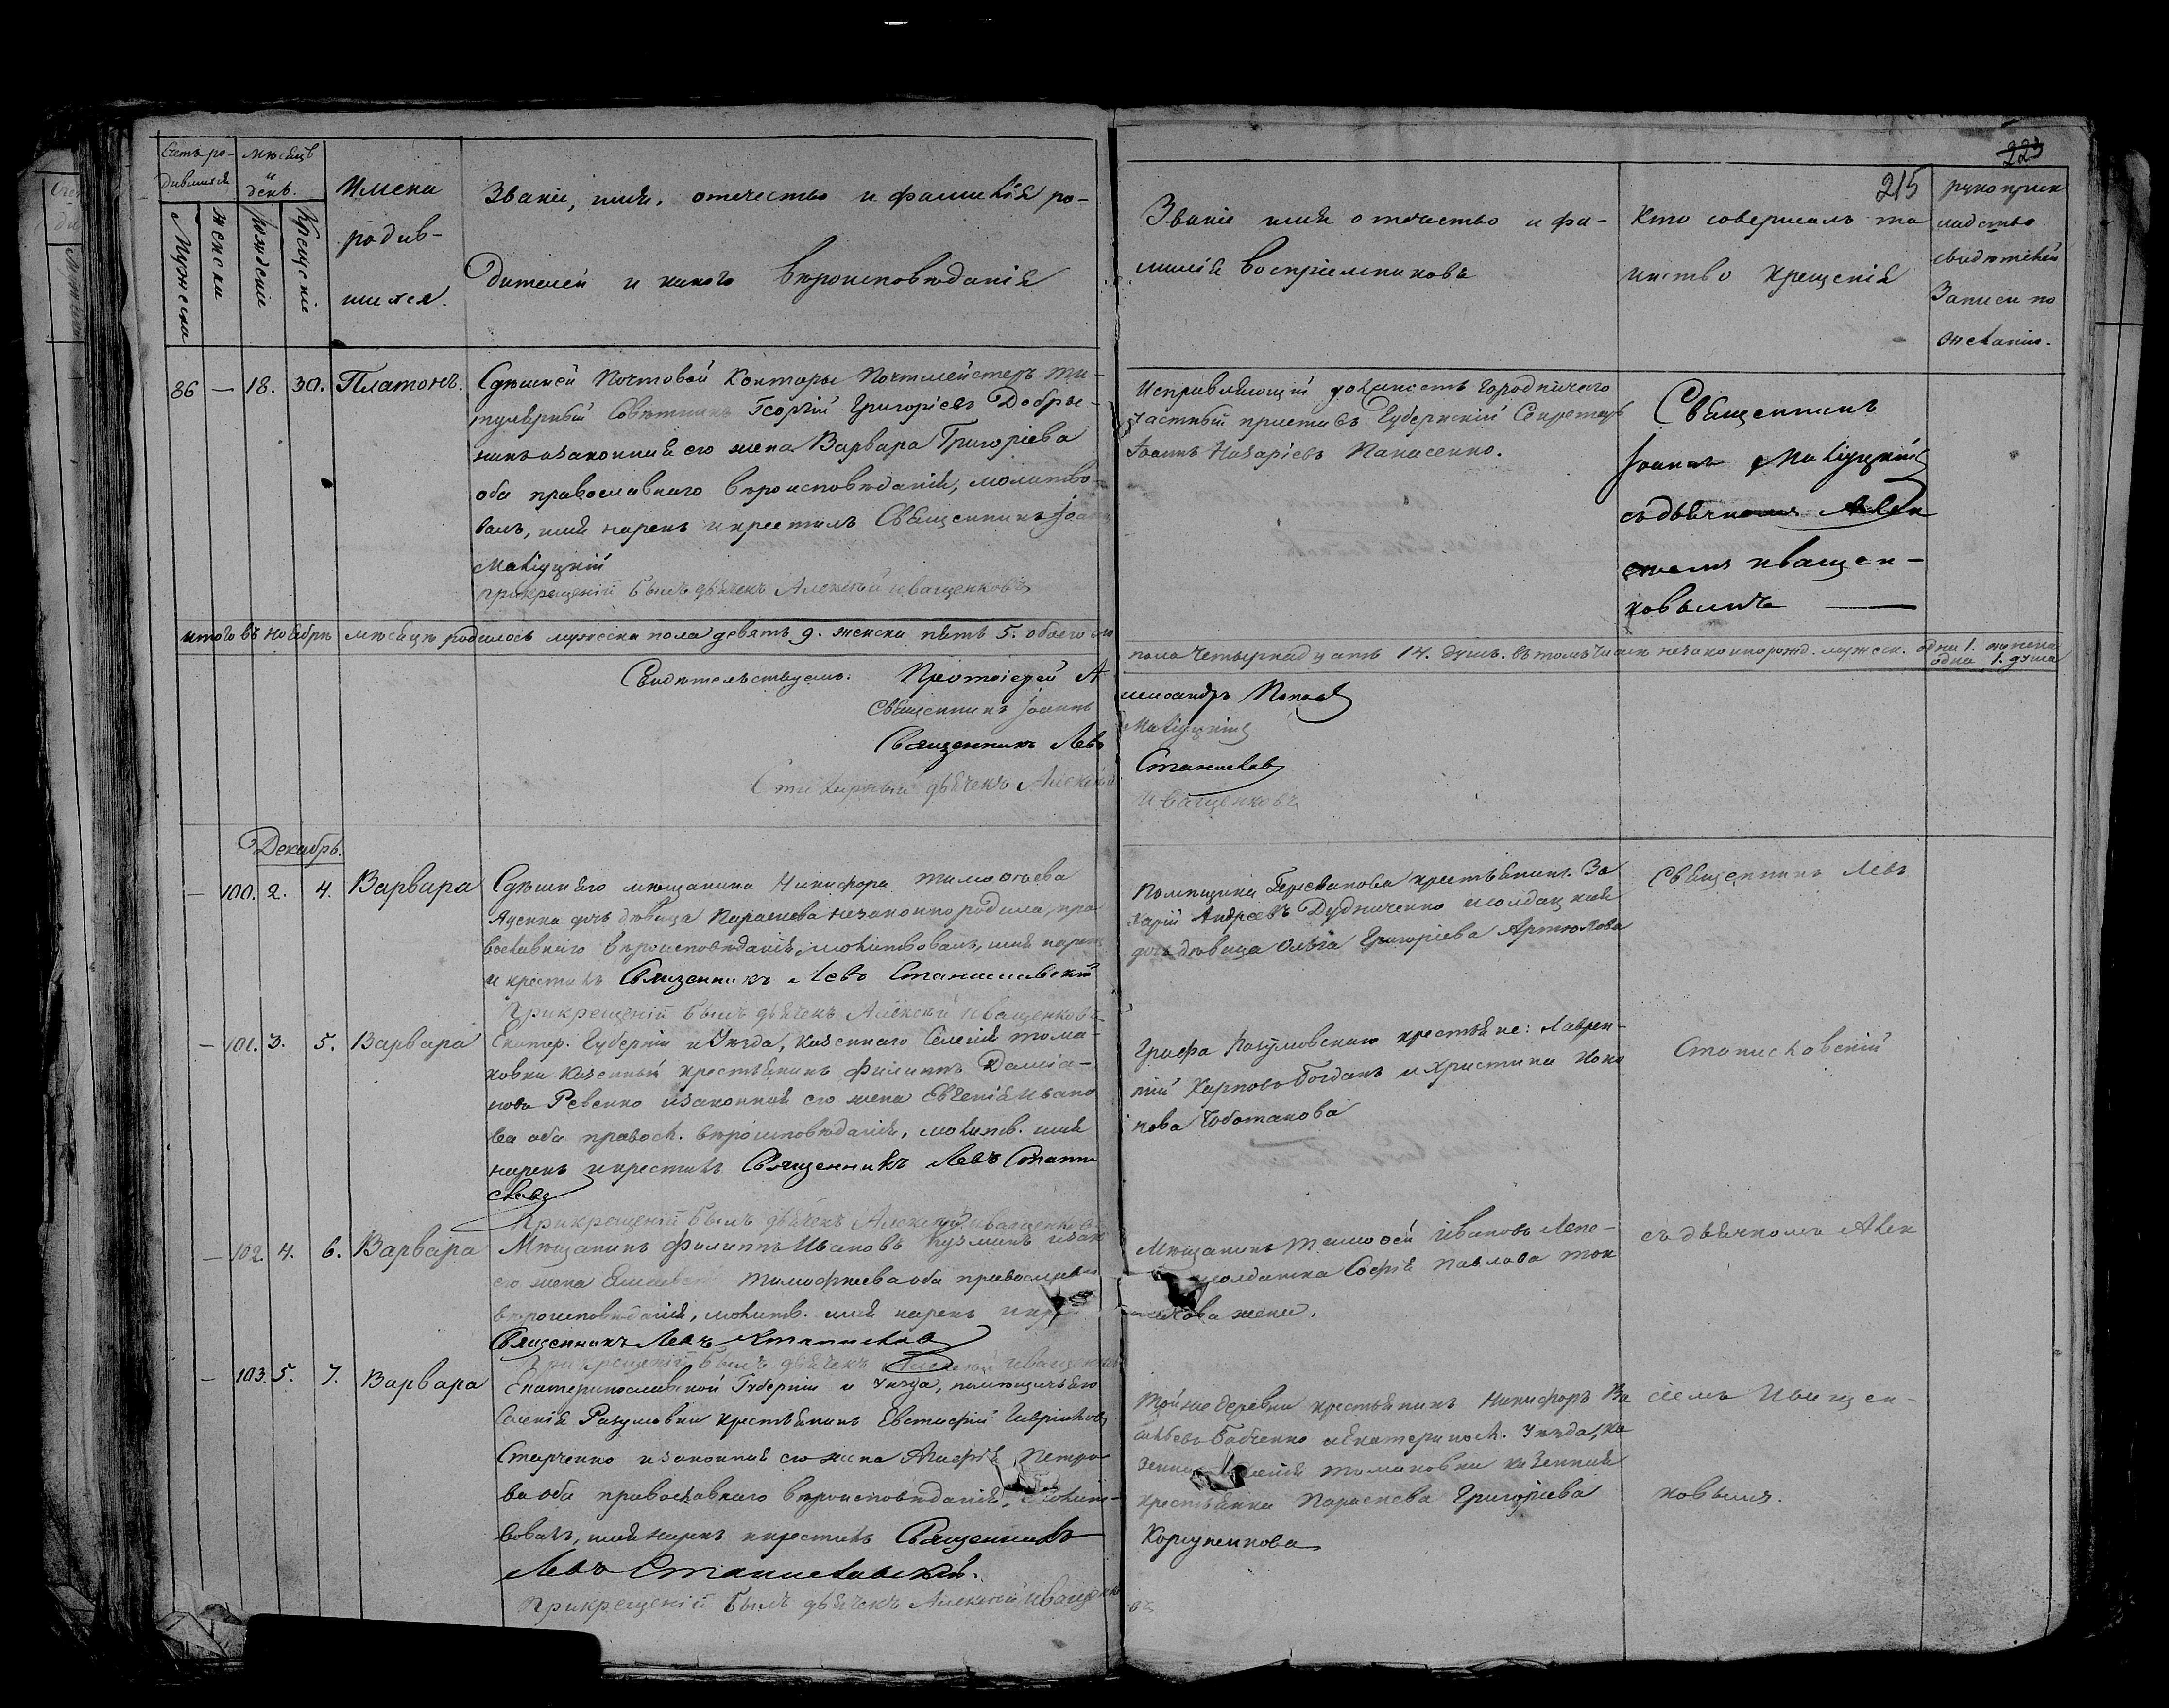 223
215
Счетъ ро-
дившихся
мѣсяцъ
и
день.
Мужески
женски
рожденіе
Крещеніе
Имена
родив-
шихся.
Званіе, имя, отечество и фамилія ро-
дителей и какого вѣроисповѣданія
Званіе имя отечество и фа-
милія воспріемниковъ
Кто совершалъ та
инство крещенія
рукоприк
ладство
свидѣтелей
Записи по
желанію.
86 — 18. 30. Платонъ.
Сдѣшней Почтовой Конторы Почтмейстеръ ти-
тулярный Совѣтникъ Георгій Григоріевъ Добры-
нинъ и законная его жена Варвара Григоріева
оба православнаго вѣроисповѣданія, молитво-
валъ, имя нарекъ и крестилъ Священникъ Іоаннъ
Малуцкій
При крещеніи былъ дьячекъ Алексѣй Иващенковъ
Исправляющій должность Городничаго
частный приставъ Губернскій Секретарь
Іоаннъ Назаріевъ Панасенко.
Священникъ
Іоаннъ Малуцкій
съ дьячкомъ Алек
сѣемъ Иващен-
ковымъ —
итого въ ноябрѣ мѣсяцѣ родилось мужеска пола девять 9. женска пять 5. обоего
пола четырнадцать 14. душъ. въ томъ числѣ незаконнорожд. мужеск. одна 1. женска
одна 1. душа
Свидѣтельствуемъ: Протоіерей А
лександръ Поповъ
Священникъ Іоаннъ
Малуцкій
Священникъ Левъ
Станиславс
Стихарный дьячекъ Алексѣй
Иващенковъ
Декабрь.
— 100. 2. 4. Варвара
Сдѣшняго мѣщанина Никифора Тимофѣева
дочь дѣвица Параскева незаконно родила, пра
вославнаго вѣроисповѣданія, молитвовалъ, имя нарекъ
и крестилъ Священникъ Левъ Станиславскій
При крещеніи былъ дьячекъ Алексѣй Иващенковъ
Помѣщика крестьянинъ За
харій Андреевъ Дудниченко и солдацкая
дочь дѣвица Ольга Григоріева Артюхова
Священникъ Левъ
— 101. 3. 5. Варвара
Екатер. Губерніи и Уѣзда, казеннаго Селенія Тома-
ковки казенный крестьянинъ Филиппъ Даміа-
новъ Ревенко и законная его жена Евгенія Ивано
ва оба правосл. вѣроисповѣданія, молитв. имя
нарекъ и крестилъ Священникъ Левъ Стани
славс
При крещеніи былъ дьячекъ Алексѣй Иващенковъ
Графа Разумовскаго крестьяне: Лаврен-
тій Карповъ Богданъ и Христина Кони
кова Чоботакова
Станиславскій
— 102. 4. 6. Варвара
Мѣщанинъ Филиппъ Ивановъ Кузминъ и зак
его жена Тимофѣева оба православн
вѣроисповѣданія, молитв. имя нарекъ и кре
Священникъ Левъ Станислав
При крещеніи былъ дьячекъ Алексѣй Иващенковъ
Мѣщанинъ Тимофѣй Ивановъ Лепе-
солдатка Софія Павлова Ток
кова жена.
съ дьячкомъ Алек
— 103. 5. 7. Варвара
Екатеринославской Губерніи и Уѣзда, помѣщичьяго
Селенія Разумовки крестьянинъ Евстафій Гавриловъ
Старченко и законная его жена Агафія Петро-
ва оба православнаго вѣроисповѣданія, молит-
вовалъ, имя нарекъ и крестилъ Священникъ
Левъ Станиславскій.
При крещеніи былъ дьячекъ Алексѣй Иващенко
въ
Той же деревни крестьянинъ Никифоръ Ва
сильевъ Бабченко и Екатериносл. Уѣзда, ка
зеннаго Селенія Томаковки казенная
крестьянка Параскева Григоріева
Коржуненкова
сѣемъ Иващен-
ковымъ.